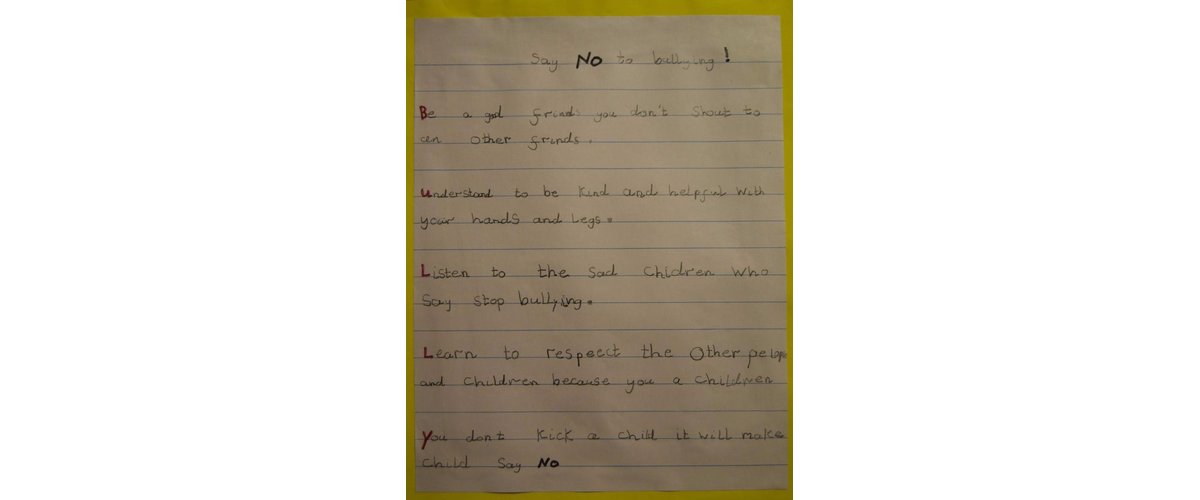 Say NO to bullying!
Be a good frinds you don't shout to
cen other frinds.
understand to be kind and helpful with
your hands and legs.
Listen to the sad children who
say stop bullying.
Learn to respect the other pelope
and children because you a children
You dont kick a child it will make
child say NO